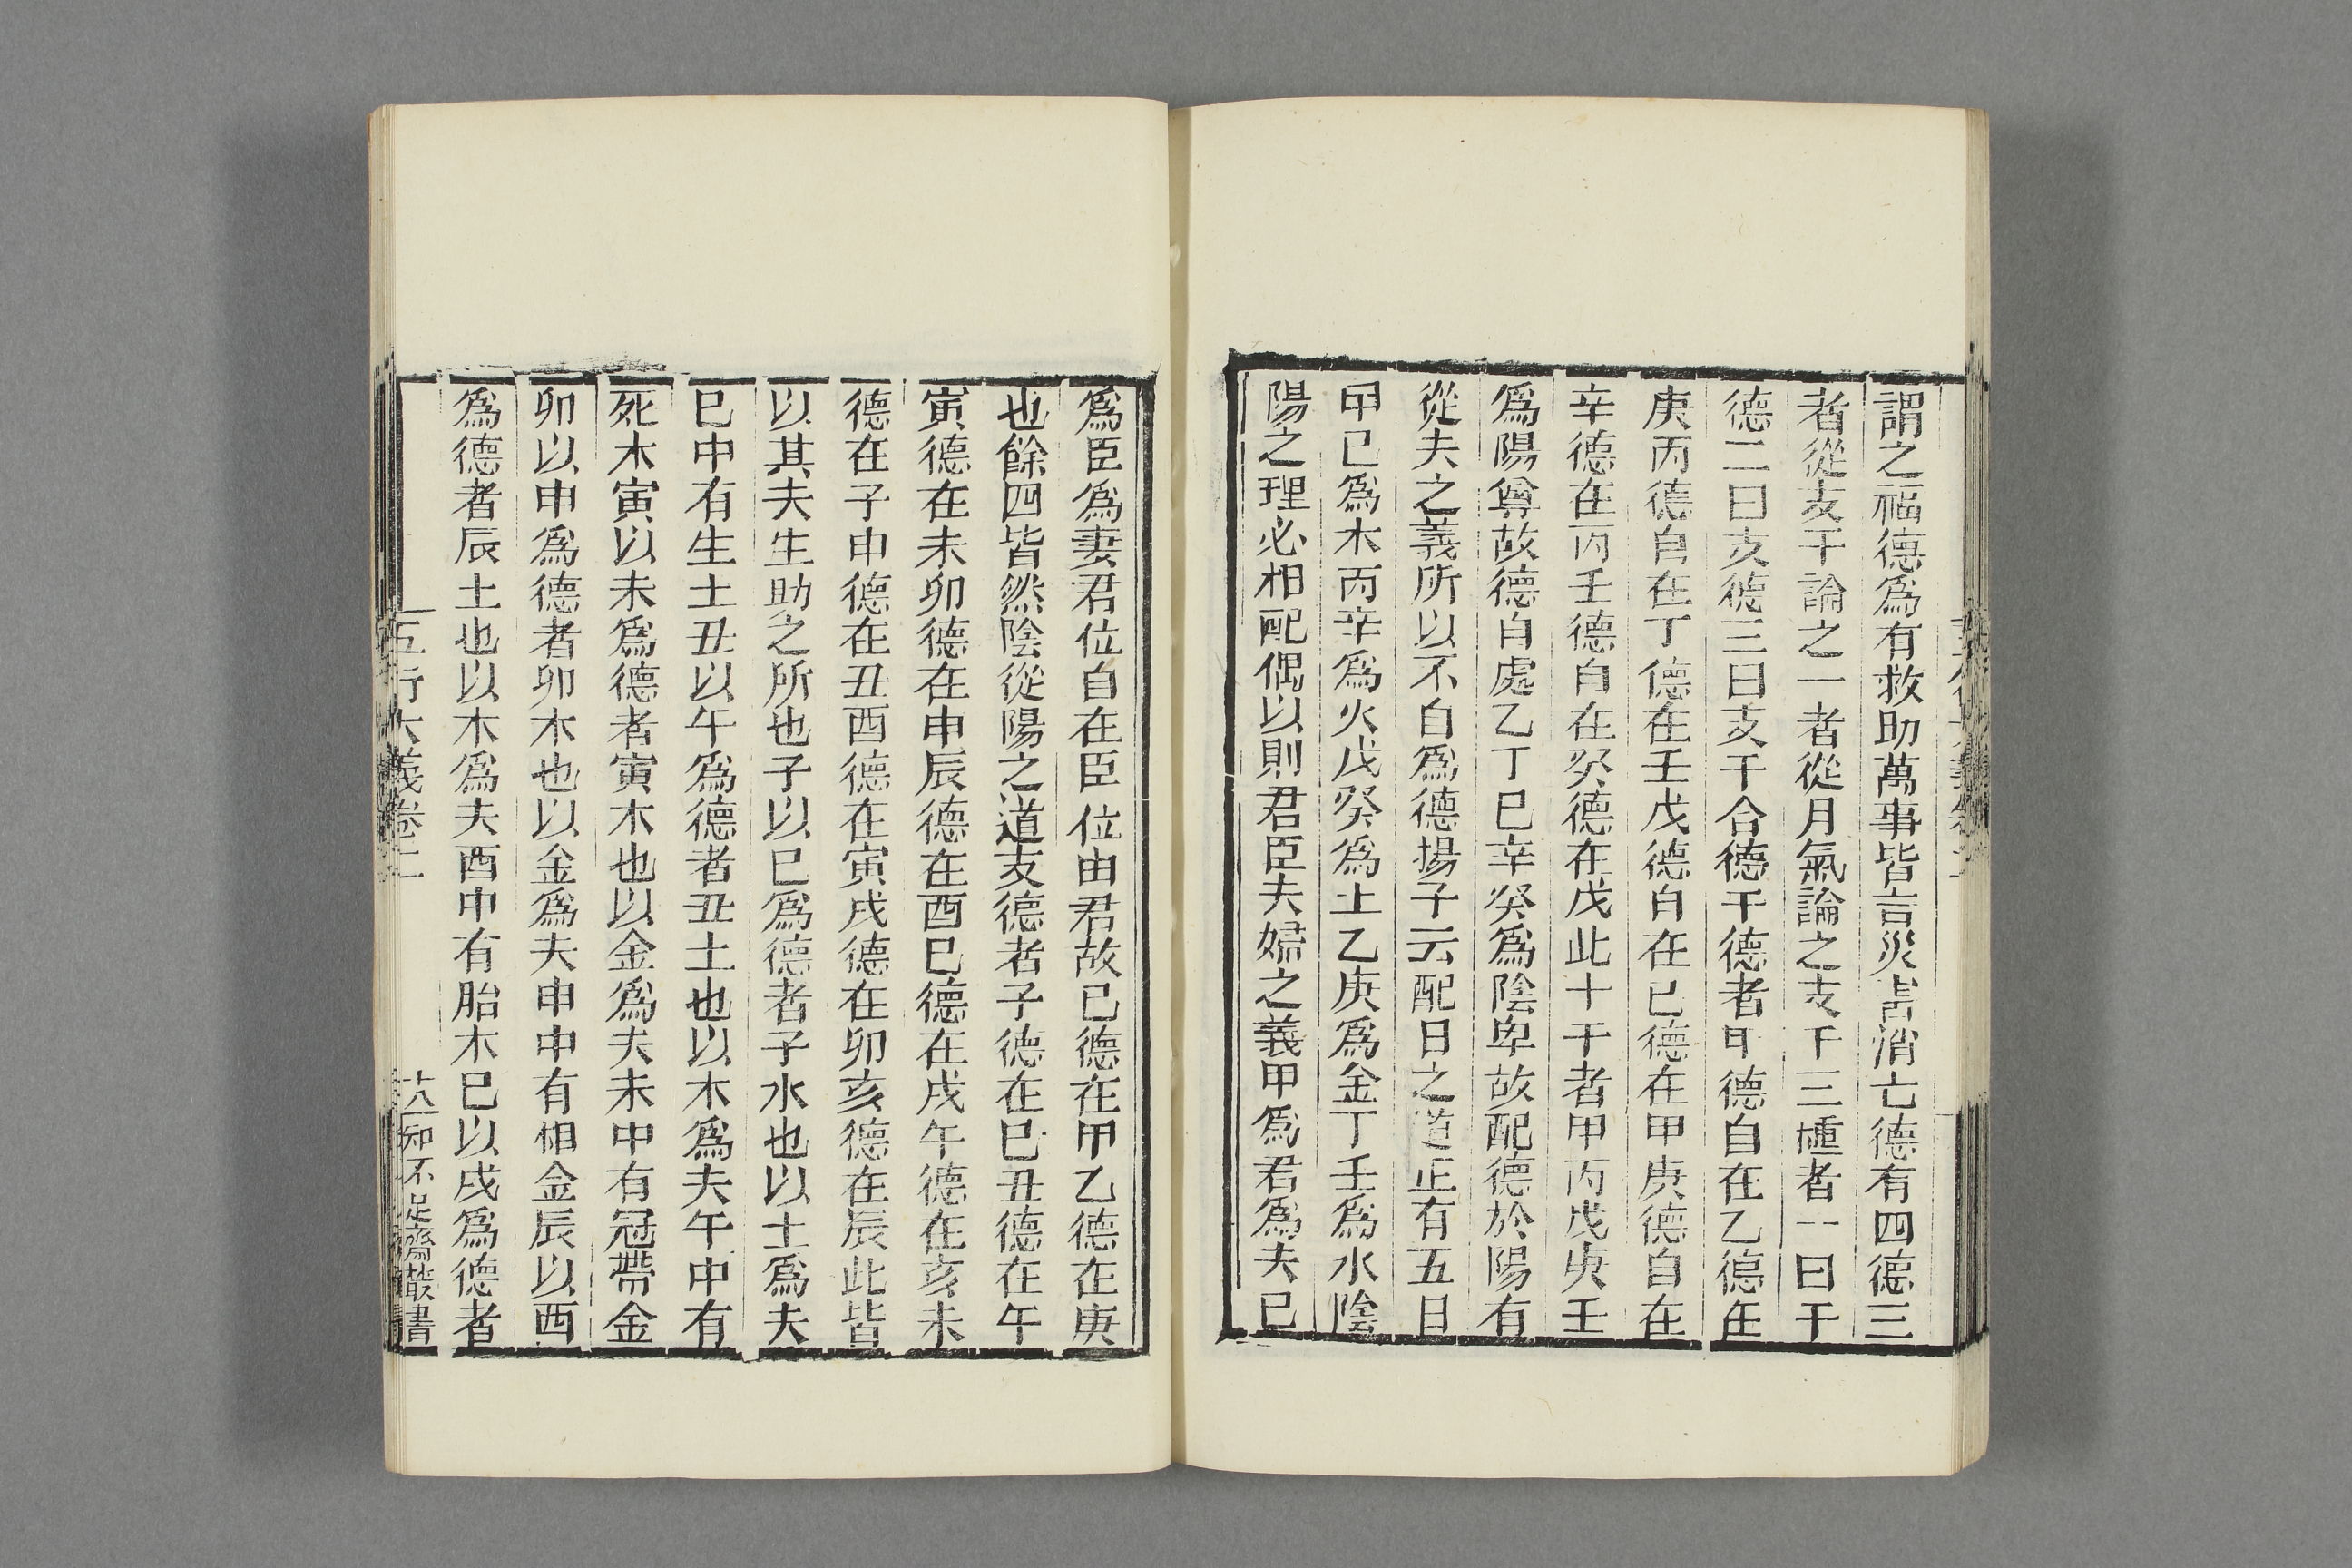 謂之福德爲有救助萬事皆言災害消亡德有四德三
者從支干論之一者從月氣論之支干三種者一曰干
德二曰支德三曰支干合德干德者甲德自在乙德在
庚丙德自在丁德在壬戊德自在己德在甲庚德自在
辛德在丙壬德自在癸德在戊此十干者甲丙戊庚壬
爲陽尊故德自處乙丁巳辛癸爲陰卑故配德於陽有
從夫之義所以不自爲德揚子云配日之道正有五日
甲己爲木丙辛爲火戊癸爲土乙庚爲金丁壬爲水陰
陽之理必相配偶以則君臣夫婦之義甲爲君爲夫已
爲臣爲妻君位自在臣位由君故已德在甲乙德在庚
也餘四皆然陰從陽之道支德者子德在巳丑德在午
寅德在未卯德在申辰德在酉巳德在戌午德在亥未
德在子申德在丑酉德在寅戌德在卯亥德在辰此皆
以其夫生助之所也子以巳爲德者子水也以土爲夫
巳中有生土丑以午爲德者丑土也以木爲夫午中有
死木寅以未爲德者寅木也以金爲夫未中有冠帶金
卯以申爲德者卯木也以金爲夫申中有相金辰以酉
爲德者辰土也以木爲夫酉中有胎木巳以戌爲德者
五行大義卷二
十八 知不足齋叢書